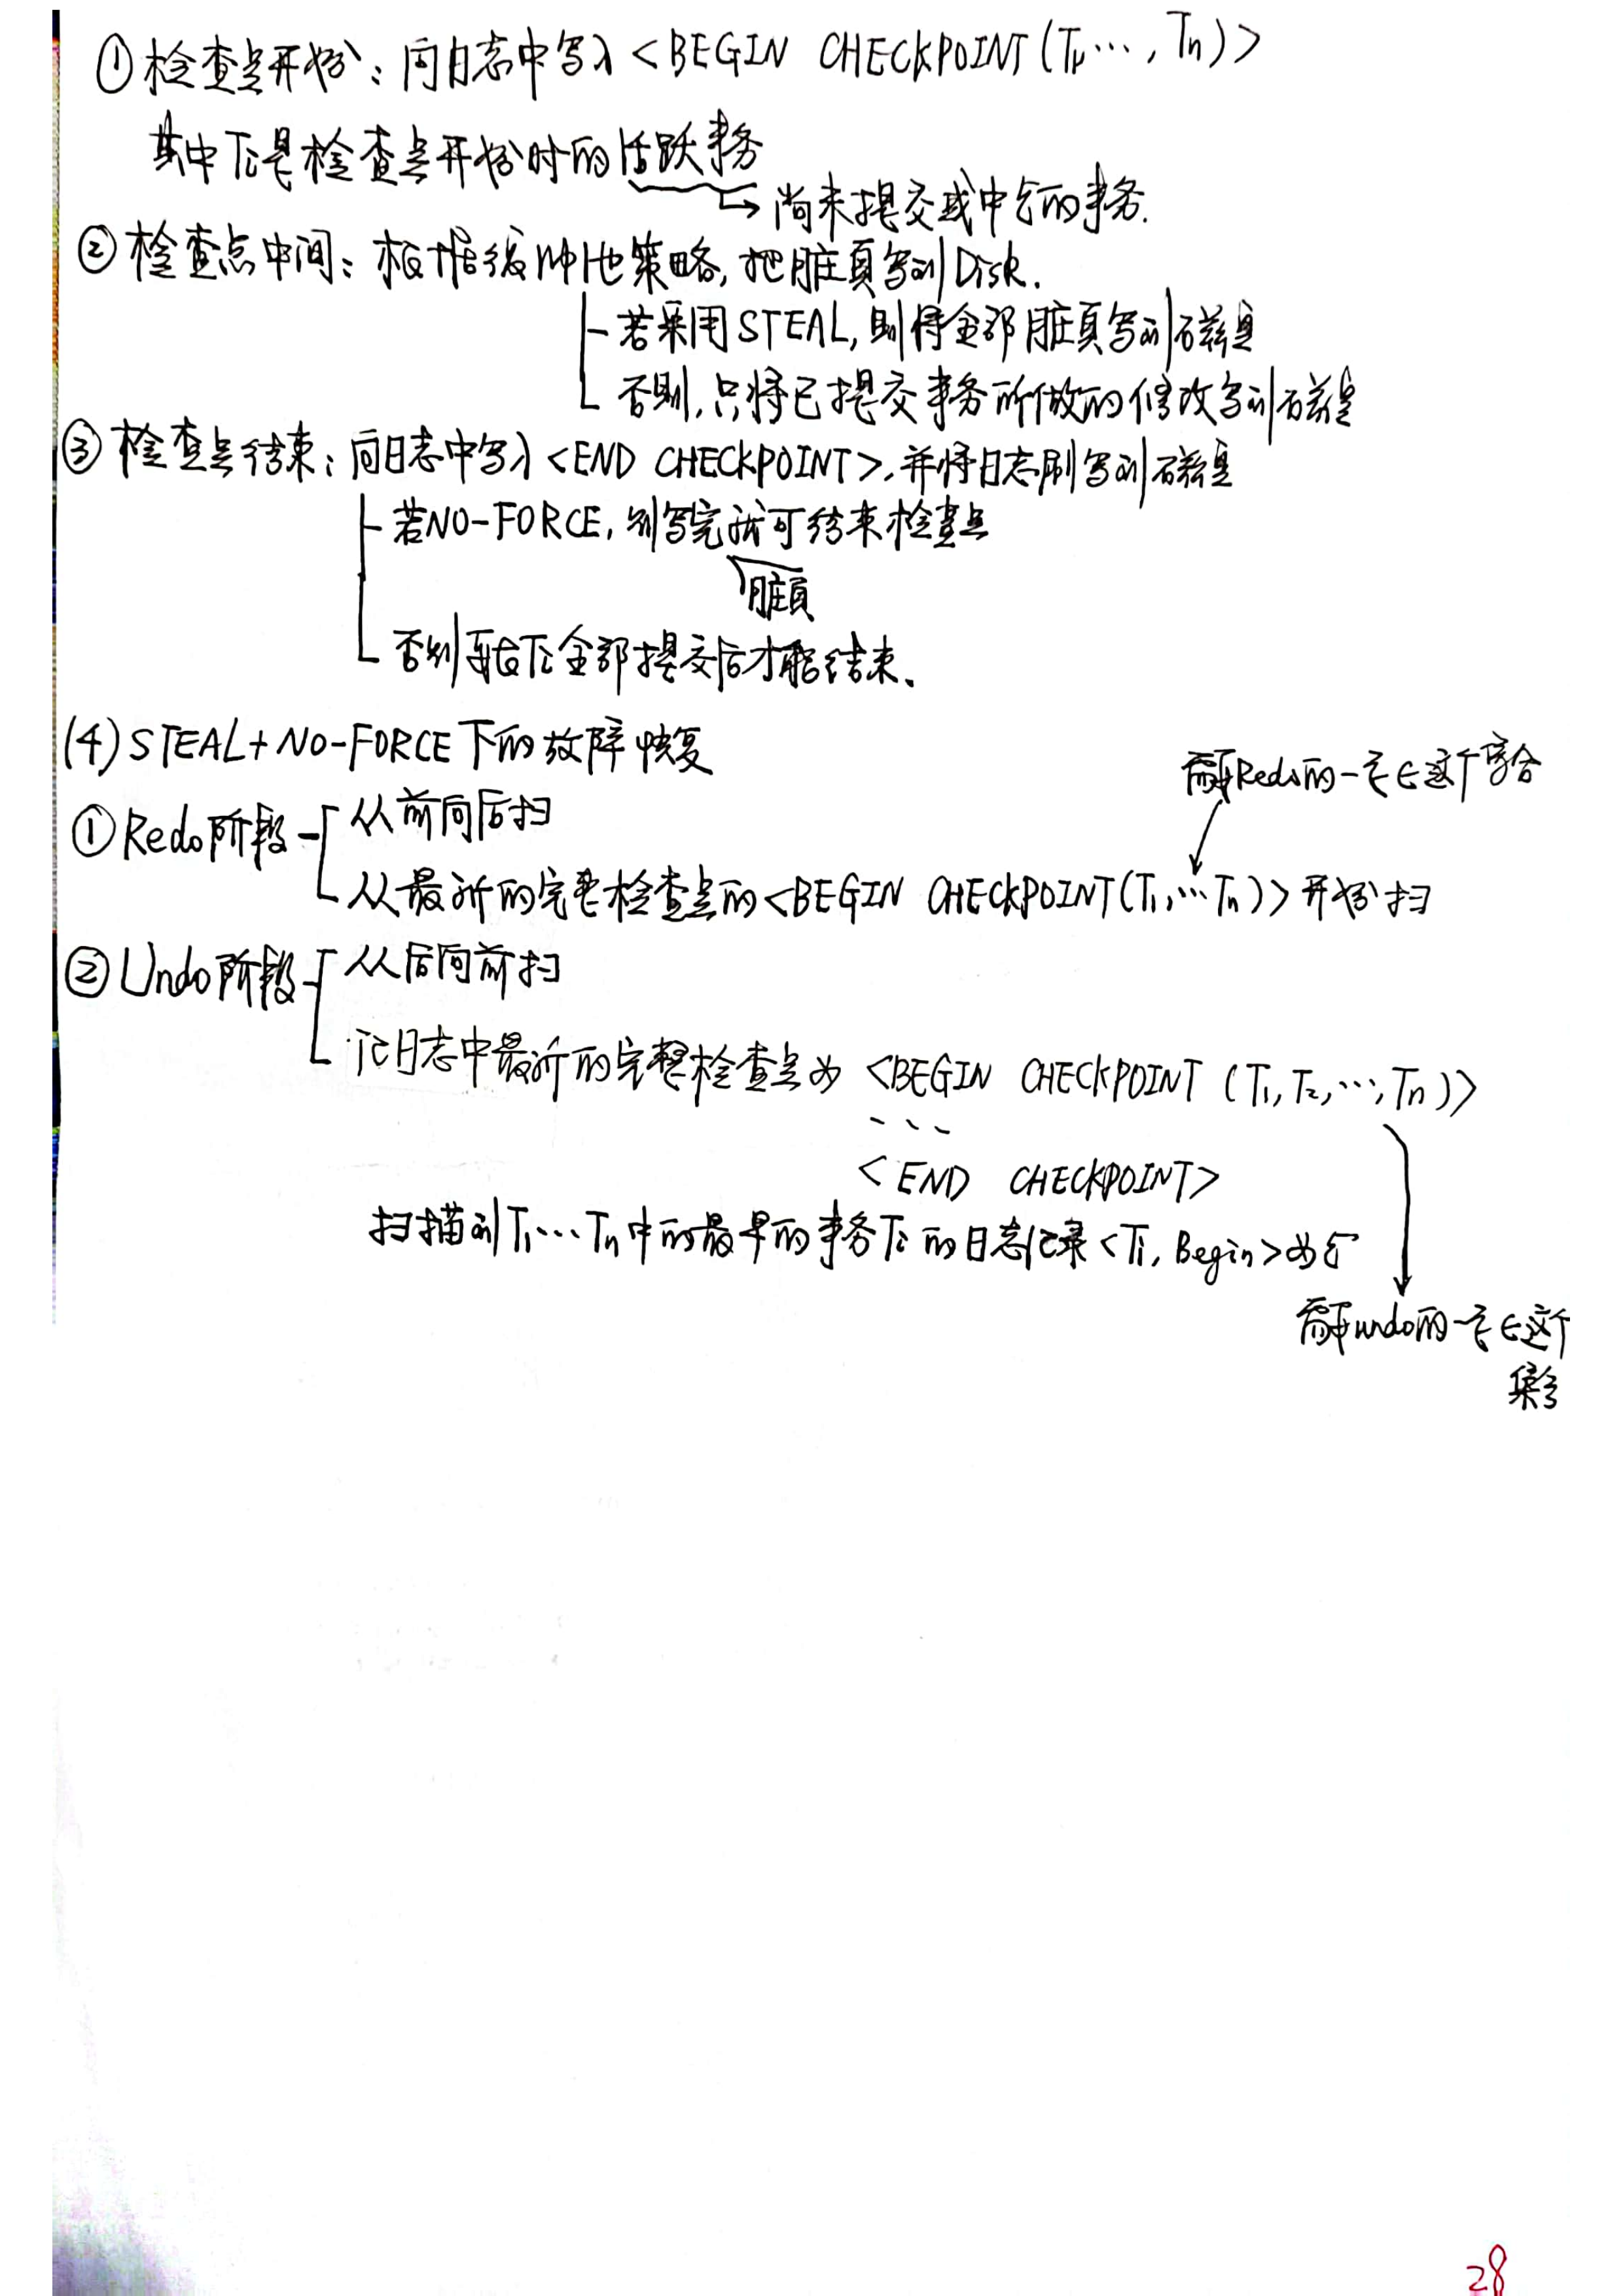 ① 检查点开始：向日志中写入 <BEGIN CHECKPOINT (T1, ..., Tn)>
其中Ti是检查点开始时的活跃事务
→ 尚未提交或中止的事务.
② 检查点中间：根据缓冲池策略, 把脏页写到Disk.
若采用STEAL, 则将全部脏页写到磁盘
否则, 只将已提交事务所做的修改写到磁盘
③ 检查点结束：向日志中写入 <END CHECKPOINT>, 并将日志刷写到磁盘
若NO-FORCE, 则写完就可结束检查点
脏页
否则要在Ti全部提交后才能结束.
(4) STEAL+NO-FORCE下的故障恢复
需要Redo的一定∈这个集合
① Redo阶段
从前向后扫
从最近的完整检查点的<BEGIN CHECKPOINT(T1, ... Tn)>开始扫
② Undo阶段
从后向前扫
记日志中最近的完整检查点为 <BEGIN CHECKPOINT (T1, T2, ..., Tn)>
...
<END CHECKPOINT>
扫描到T1...Tn中的最早的事务Ti的日志记录<Ti, Begin>为止
需要undo的一定∈这个
集合
28